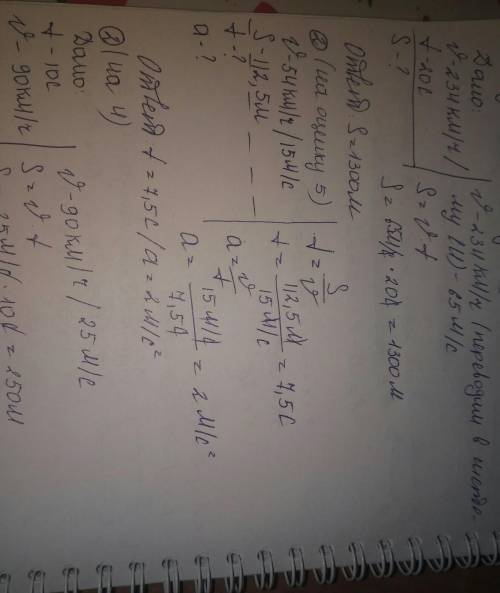 Дано:
v - 234 км/ч
t - 20с
S - ?
v - 234 км/ч (переводим в
- 65 м/с
S = v t
S = 65 м/с · 20с = 1300 м
Ответ: S = 1300 м
② (на оценку 5)
v - 54 км/ч / 15 м/с
S - 112,5 м
t - ?
a - ?
t = S/v
t = 112,5 м / 15 м/с = 7,5 с
a = v/t
a = 15 м/с / 7,5 с = 2 м/с²
Ответ t = 7,5 с / a = 2 м/с²
② (на 4)
Дано:
t - 10с
v - 90 км/ч
v - 90 км/ч / 25 м/с
S = v t
25 м/с · 10с = 250 м